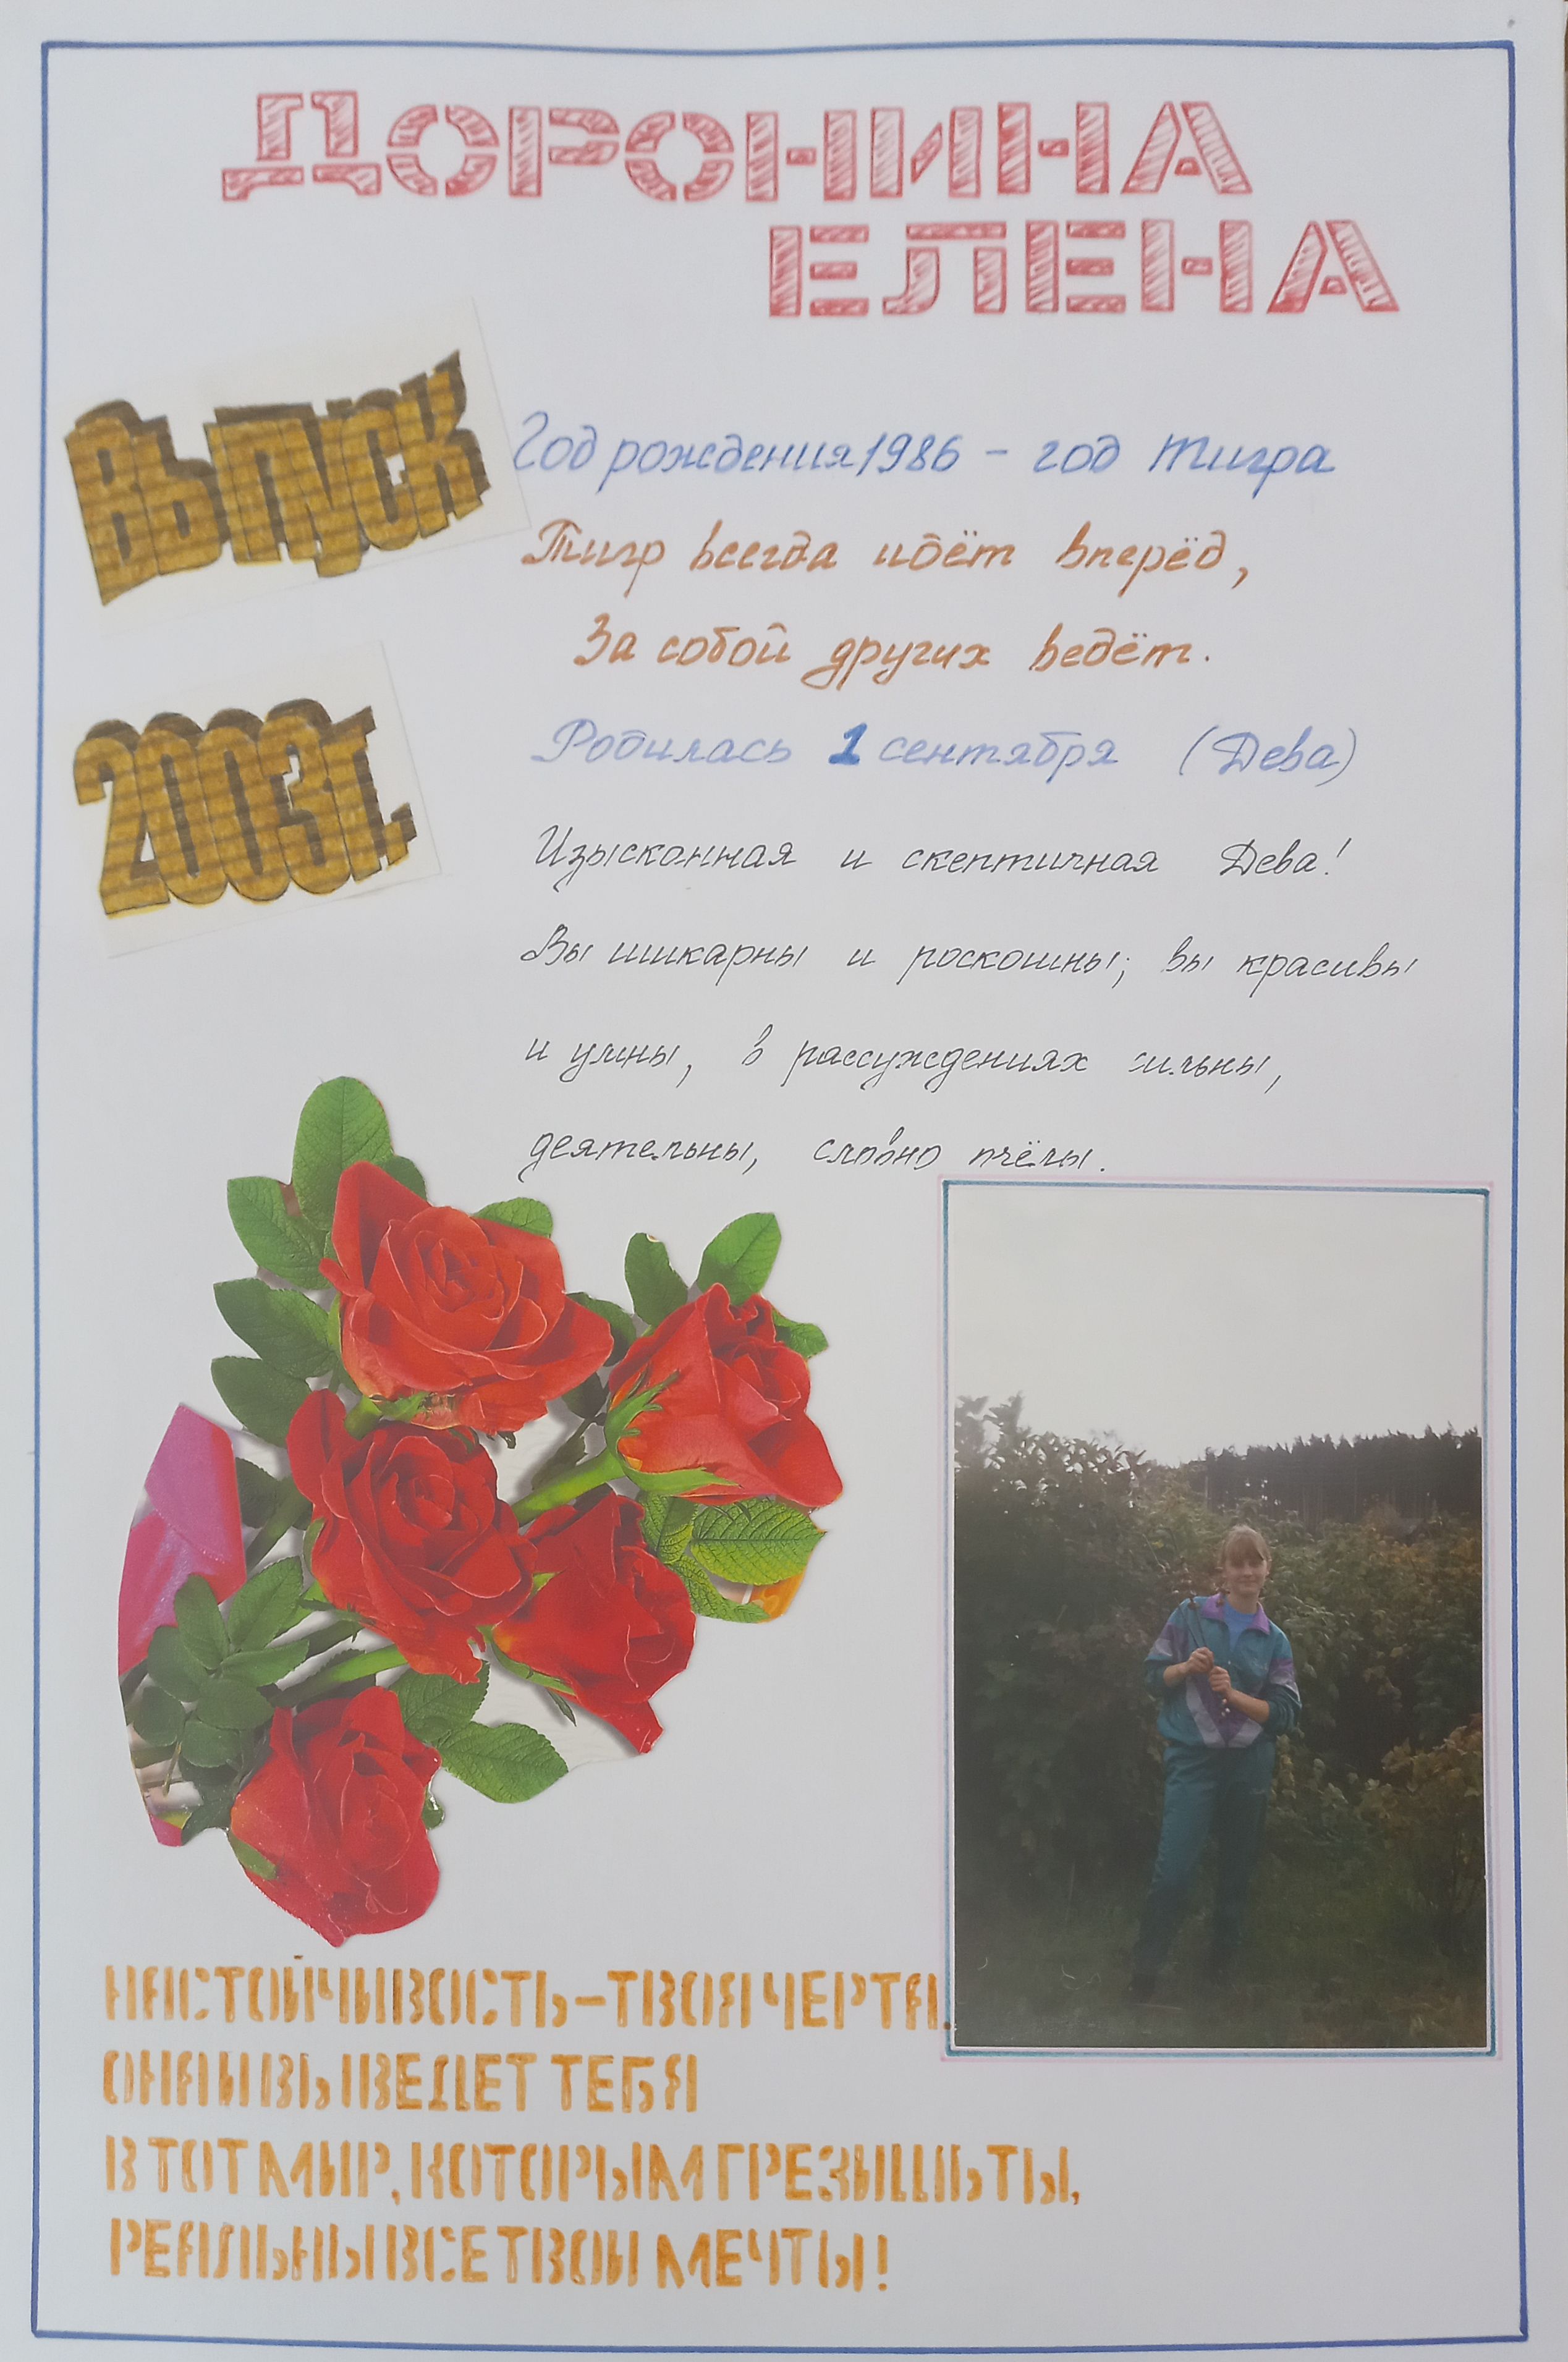 ДОРОНИНА
ЕЛЕНА
ВЫПУСК
2003г.
Год рождения 1986 – год тигра
Тигр всегда идёт вперёд,
За собой других ведёт.
Родилась 1 сентября (Дева)
Изысконная и скептичная Дева!
Вы шикарны и роскошны; вы красивы
и умны, в рассуждениях сильны,
деятельны, словно пчёлы.
НАСТОЙЧИВОСТЬ – ТВОЯ ЧЕРТА.
ОНА И ВЫВЕДЕТ ТЕБЯ
В ТОТ МИР, КОТОРЫМ ГРЕЗИШЬ ТЫ,
РЕАЛЬНЫ ВСЕ ТВОИ МЕЧТЫ!